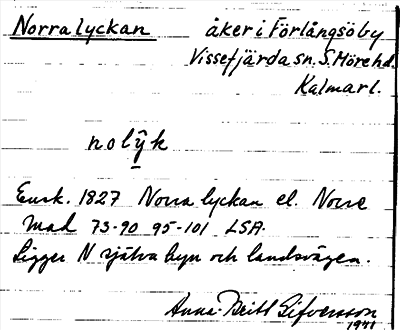 Norra lyckan åker i Förlångsöby
Vissefjärda sn. S. Möre hd.
Kalmar l.
nolŷk
Ensk. 1827 Norra lyckan el. Norre
Mad 73-90 95-101 LSA.
Ligger N själva byn och landsvägen.
Anna-Britt Sifvensson
1941